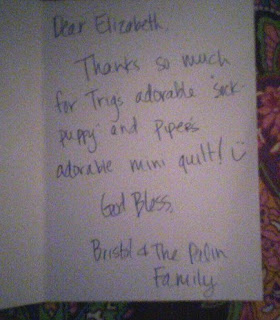 Dear Elizabeth,
Thanks so much
for Trigs adorable "sock-
puppy" and Piper's
adorable mini quilt!
God Bless,
Bristol & The Palin
Family